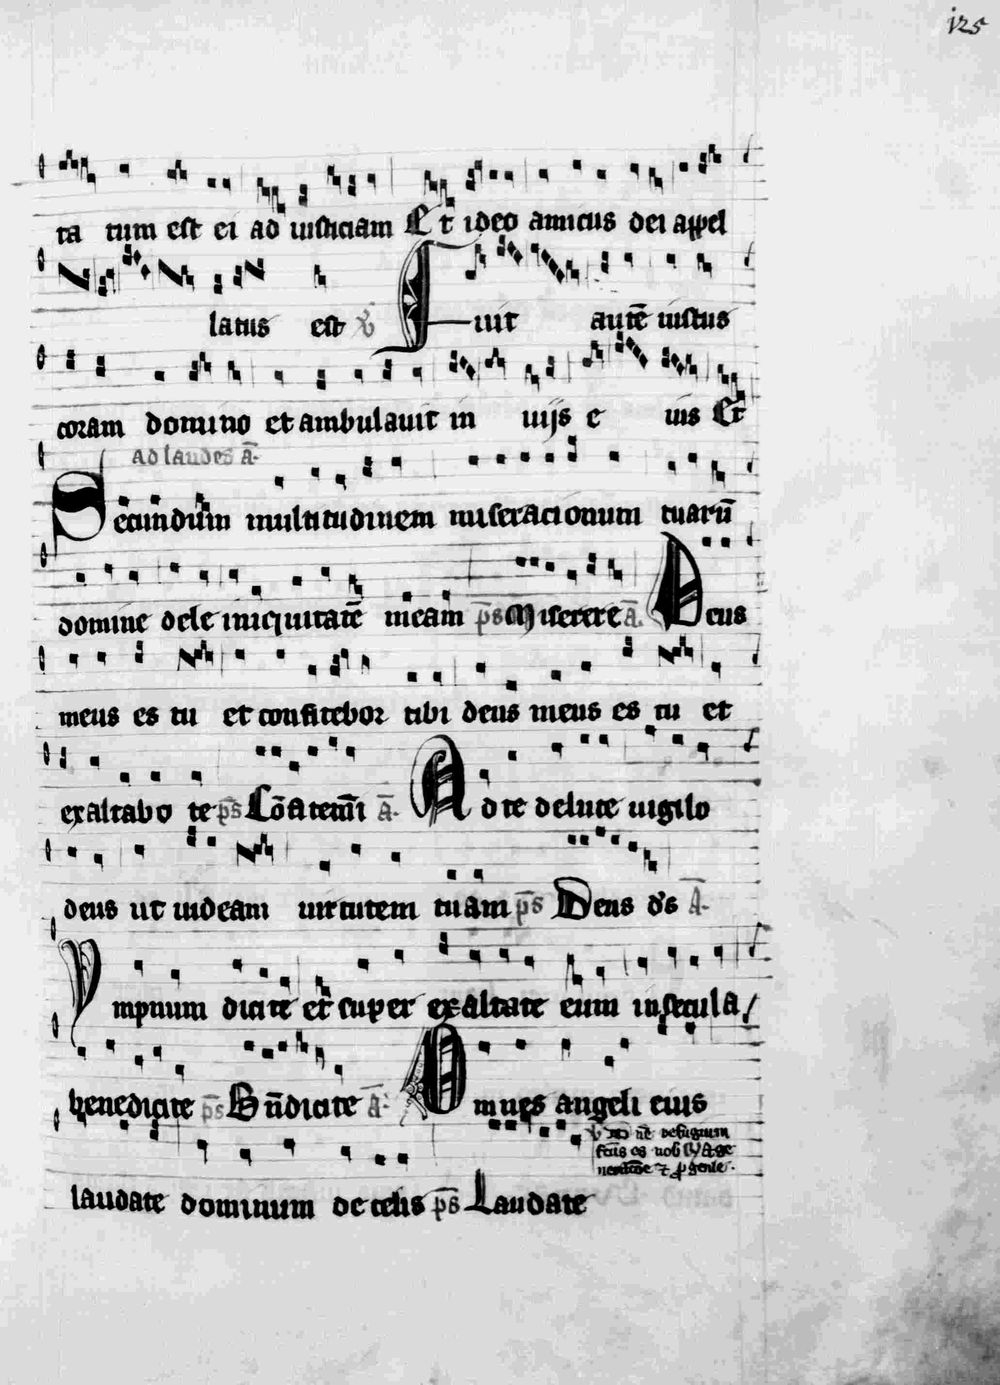 125
ta tum est ei ad iusticiam Et ideo amicus dei appel
latus est v̄ Fuit autē iustus
coram domino et ambulauit in uijs e ius Et
ad laudes ā.
Secundum multitudinem miseracionum tuarū
domine dele iniquitatē meam p̄s Miserere ā. Deus
meus es tu et confitebor tibi deus meus es tu et
exaltabo te p̄s Cōfitem̄i ā. Ad te de luce uigilo
deus ut uideam uirtutem tuam p̄s Deus d's ā.
Ympnum dicite et super exaltate eum in secula /
benedicite p̄s Bn̄dicite ā. Omnes angeli eius
v̄ Dn̄e refugium
fcūs es nob
laudate dominum de celis p̄s Laudate